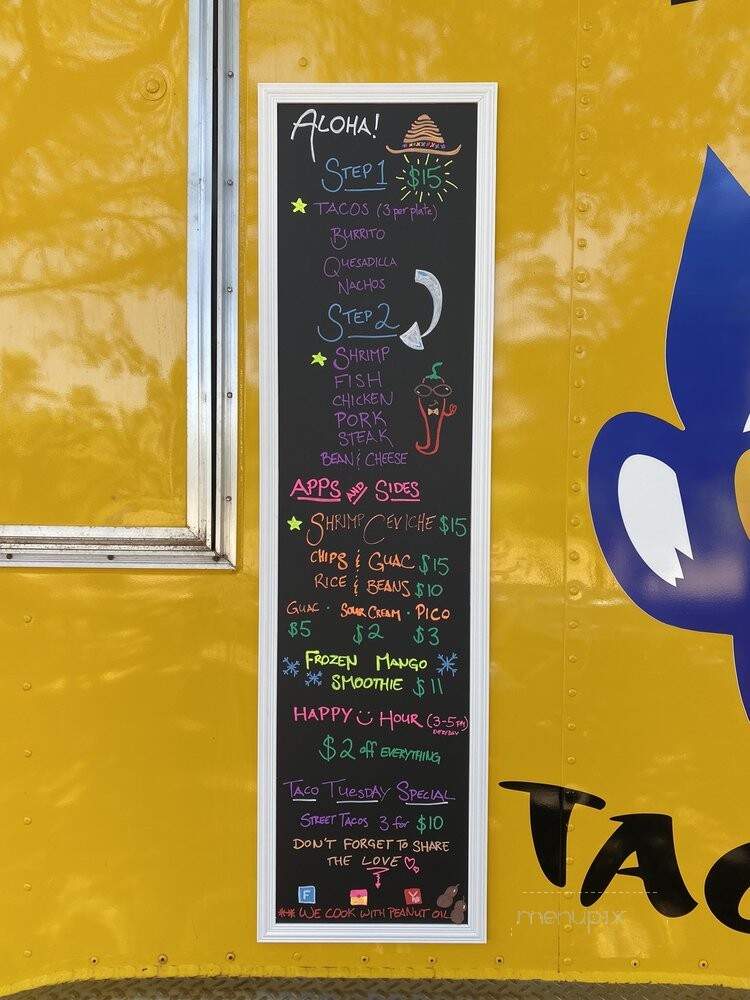 ALOHA!
STEP 1 $15
TACOS (3 per plate)
BURRITO
QUESADILLA
NACHOS
STEP 2
SHRIMP
FISH
CHICKEN
PORK
STEAK
BEAN & CHEESE
APPS AND SIDES
SHRIMP CEVICHE $15
CHIPS & GUAC $15
RICE & BEANS $10
GUAC · SOUR CREAM · PICO
$5 $2 $3
FROZEN MANGO
SMOOTHIE $11
HAPPY HOUR (3-5PM)
EVERYDAY
$2 off EVERYTHING
TACO TUESDAY SPECIAL
STREET TACOS 3 for $10
DON'T FORGET TO SHARE
THE LOVE
F
** WE COOK WITH PEANUT OIL
TAC
menupix